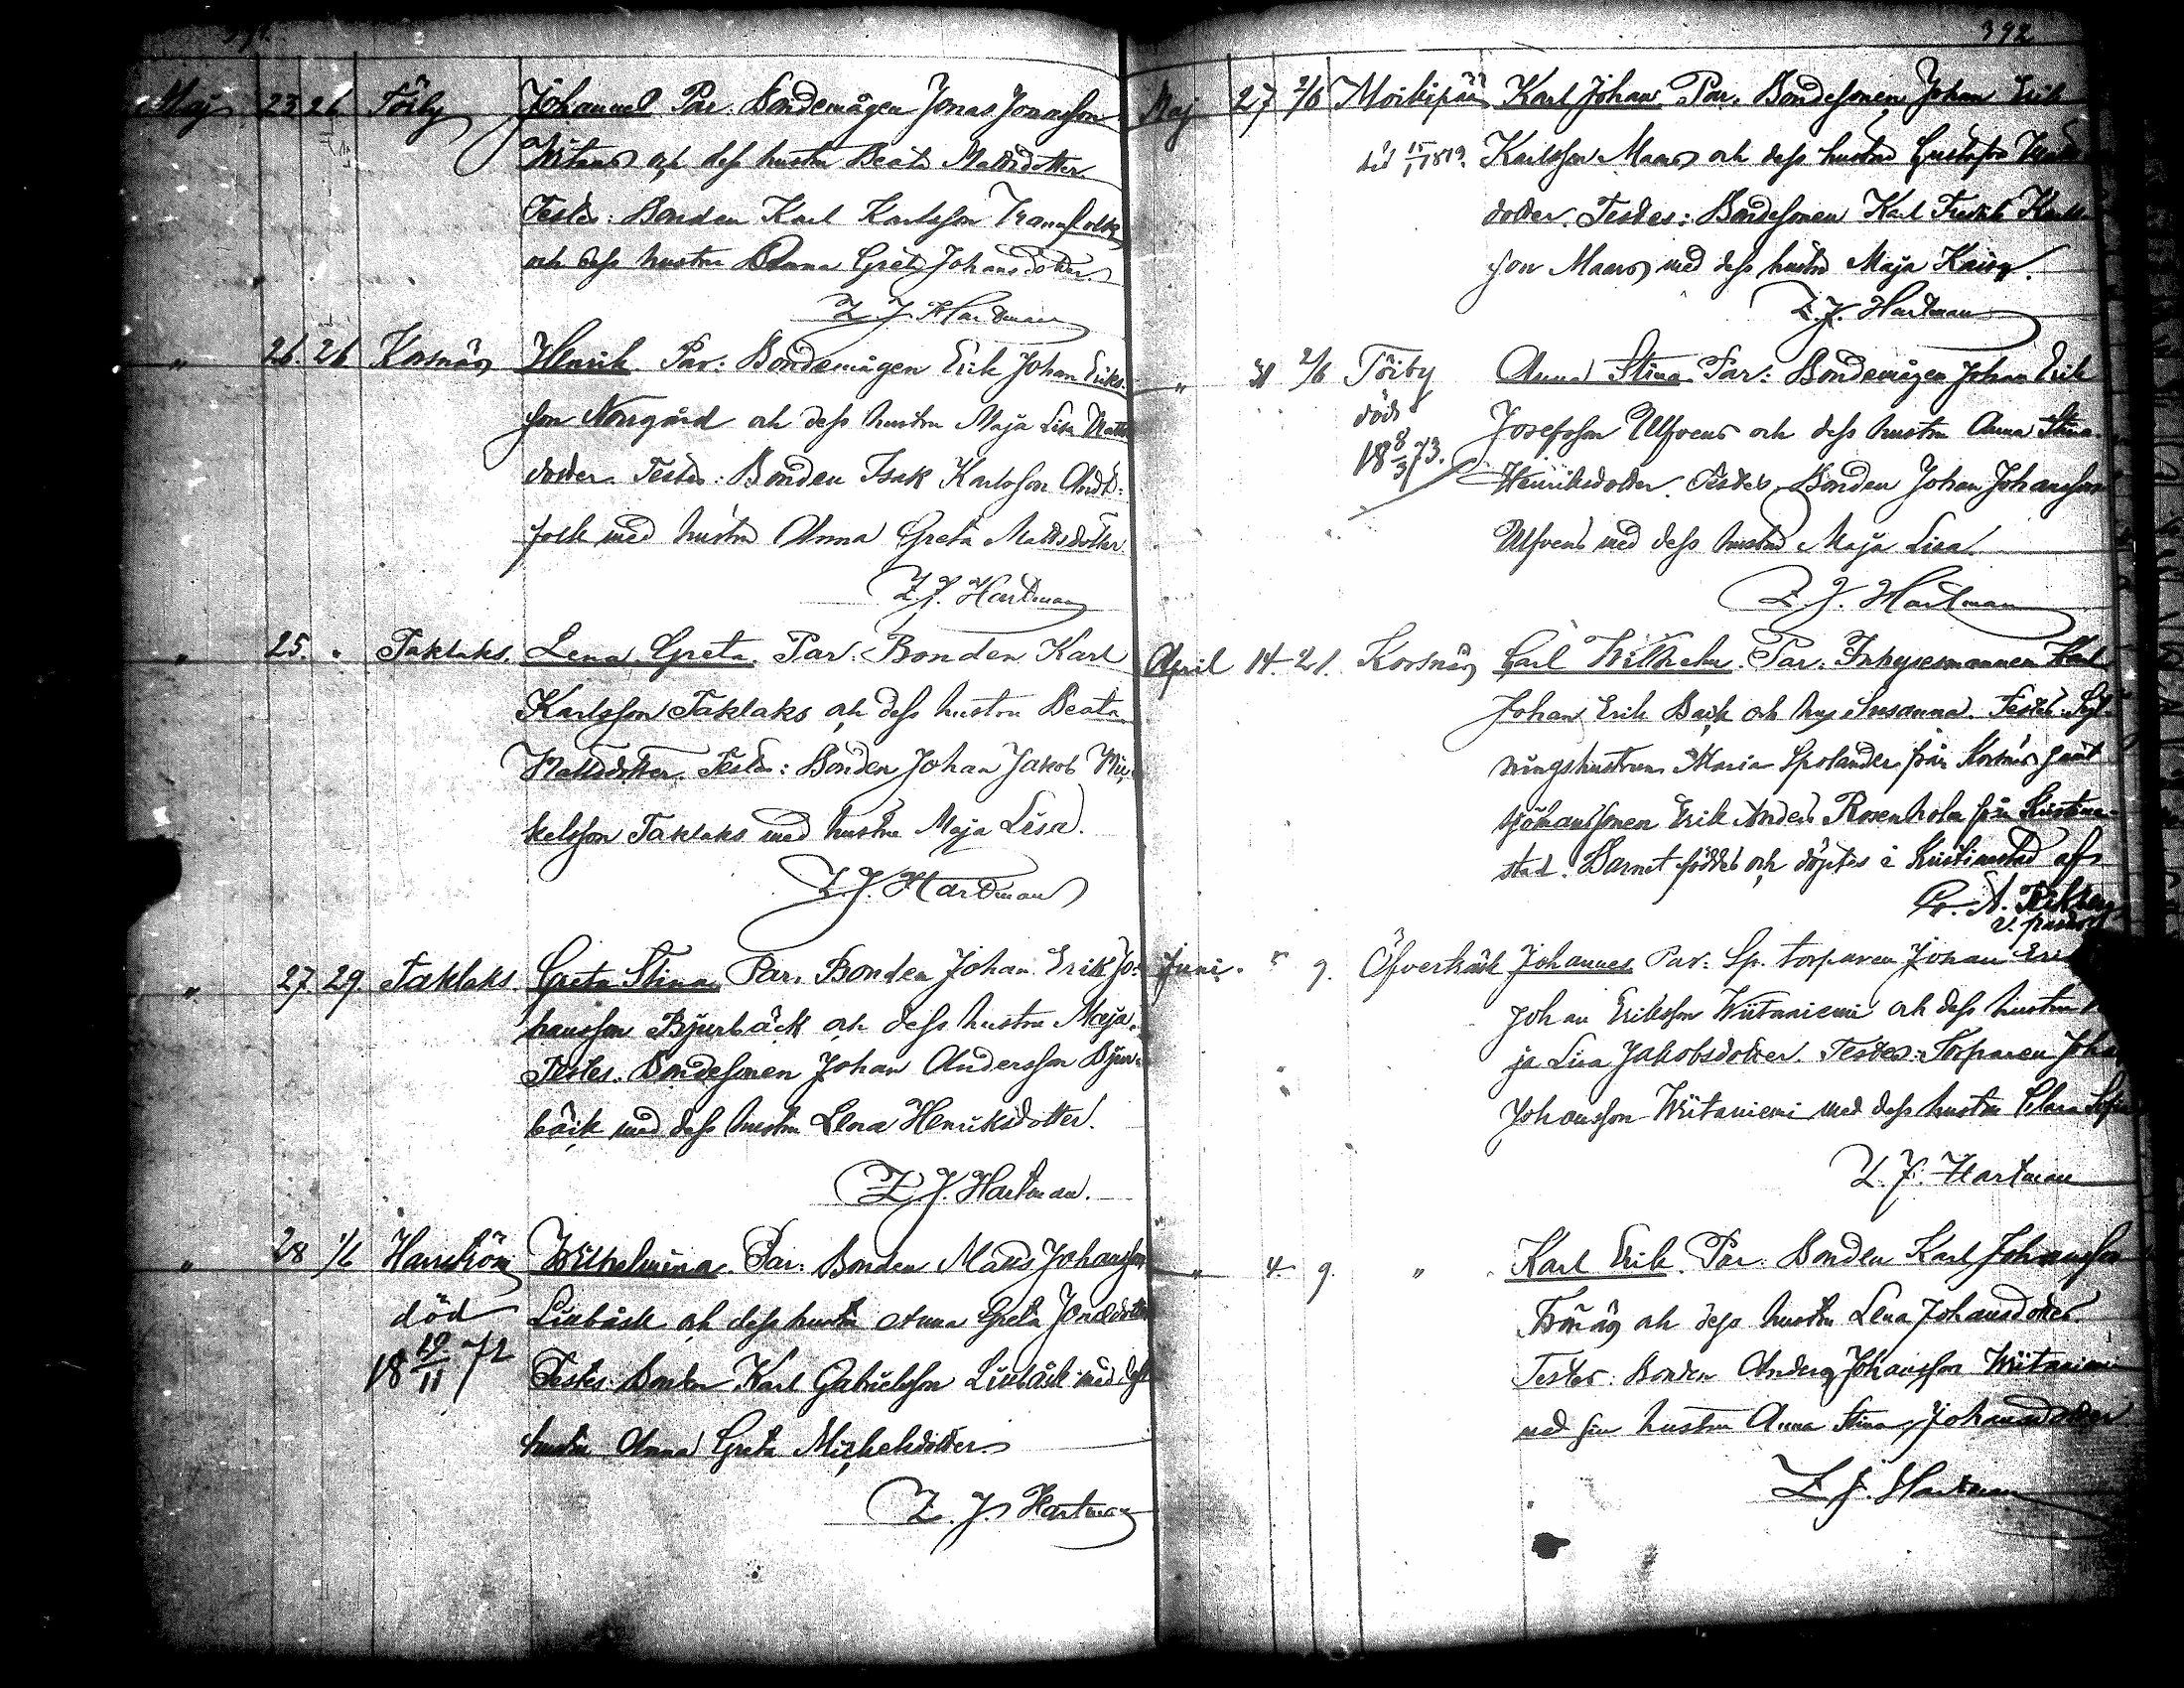 Maj 23 26 Törby Johannes Par. Bondemågen Jonas Jonasson
och dess hustru Beata Mattsdotter
Testes: Bonden Karl Karlsson
och dess hustru Anna Greta Johansdotter.
Z. J. Hartman
" 26. 26 Korsnäs Henrik Par: Bondemågen Erik Johan Eriks-
son Norrgård och dess hustru Maja Lisa Matts
dotter. Testes: Bonden Isak Karlsson
folk med hustru Anna Greta Mattsdotter
Z. J. Hartman
" 25. " Taklaks. Lena Greta. Par: Bonden Karl
Karlsson Taklaks och dess hustru Beata
Mattsdotter. Testes: Bonden Johan Jakob Mi-
kelsson Taklaks med hustru Maja Lisa.
Z. J. Hartman
" 27. 29. Taklaks. Greta Stina Par. Bonden Johan Erik Jo-
hansson Bjurbäck och dess hustru Maja.
Testes. Bondesonen Johan Andersson Bjur-
bäck med dess hustru Lena Henriksdotter.
Z. J. Hartman.
" 28 1/6 Harrström Wilhelmina. Par: Bonden Matts Johansson
död Linbäck och dess hustru Anna Greta
18 19/11 72 Testes. Bonden Karl Gabrielsson Linbäck med dess
hustru Anna Greta Michelsdotter
Z. J. Hartman
392
Maj 27 2/6 Moikipää Karl Johan Par. Bondesonen Johan Erik
Karlsson Maars och dess hustru Gustafva
dotter. Testes: Bondesonen Karl Fredrik Karls
son Maars med dess hustru Maja Kaisa.
Z. J. Hartman
" 31 2/6 Törby Anna Stina. Par: Bondemågen Johan Erik
död Josefsson Ulfvens och dess hustru Anna Stina
18 8/3 73. Henriksdotter. Testes, Bonden Johan Johansson
Ulfvens med dess hustru Maja Lisa.
Z. J. Hartman
April 14. 21. Korsnäs Carl Wilhelm. Par. Inhysesmannen Karl
Johan Erik Back och hus Susanna. Testes.
ningshustrun Maria från Korsnäs samt
sjömanssonen Erik Anders Rosenholm från Kristine-
stad. Barnet föddes och döptes i Kristinestad af
v. pastor
Juni. " 9. Öfverträsk Johannes Par: Sp. torparen Johan
Johan Eriksson Wiitaniemi och dess hustru
ja Lisa Jakobsdotter. Testes: Torparen Johan
Johansson Wiitaniemi med dess hustru Clara Sofia
Z. J. Hartman
" 4. 9. " Karl Erik. Par: Bonden Karl Johansson
och dess hustru Lena Johansdotter.
Testes: Bonden Anders Johansson Wiitaniemi
med sin hustru Anna Stina Johansdotter
Z. J. Hartman